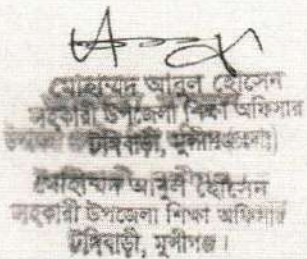 মোহাম্মদ আবুল হোসেন
সহকারী উপজেলা শিক্ষা অফিসার
টঙ্গিবাড়ী, মুন্সীগঞ্জ
মোহাম্মদ আবুল হোসেন
সহকারী উপজেলা শিক্ষা অফিসার
টঙ্গিবাড়ী, মুন্সীগঞ্জ।